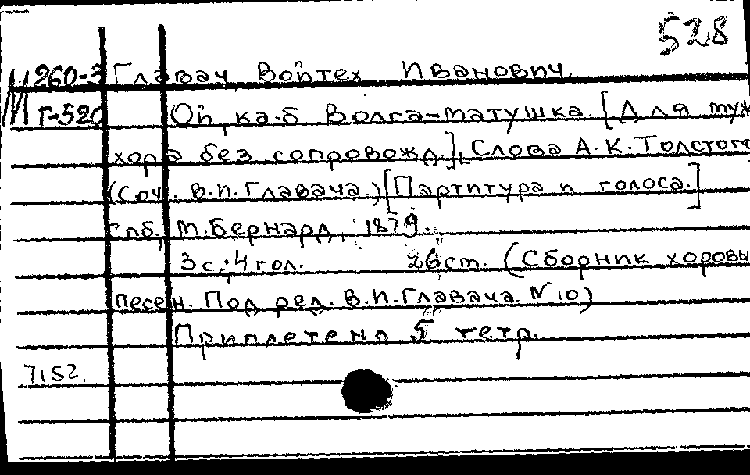 528
М 260-3 Главач, Войтех Иванович.
Г-520 Ой, ка-б Волга-матушка. [Для муж
хора без сопровожд.], Слова А.К.Толстого
(Соч. В.И.Главача.) [Партитура и голоса.]
Спб, М.Бернард, 1879.
3 с., 4 гол. 26 ст. (Сборник хоровы
песен. Под ред. В.И.Главача. №10)
Приплетено 5 тетр.
7152.